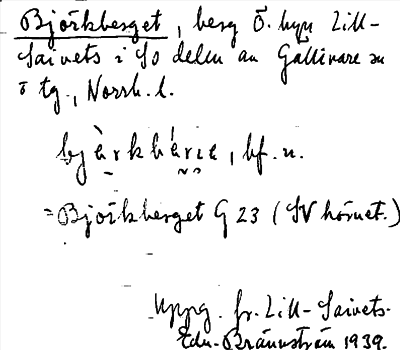 Björkberget, berg Ö. byn Lill-
Saivets i SO delen av Gällivare sn
o tg., Norrb. l.
bjärkbäríe, bf. n.
= Björkberget G 23 (SV hörnet.)
Uppg. fr. Lill-Saivets.
Edv. Brännström 1939.